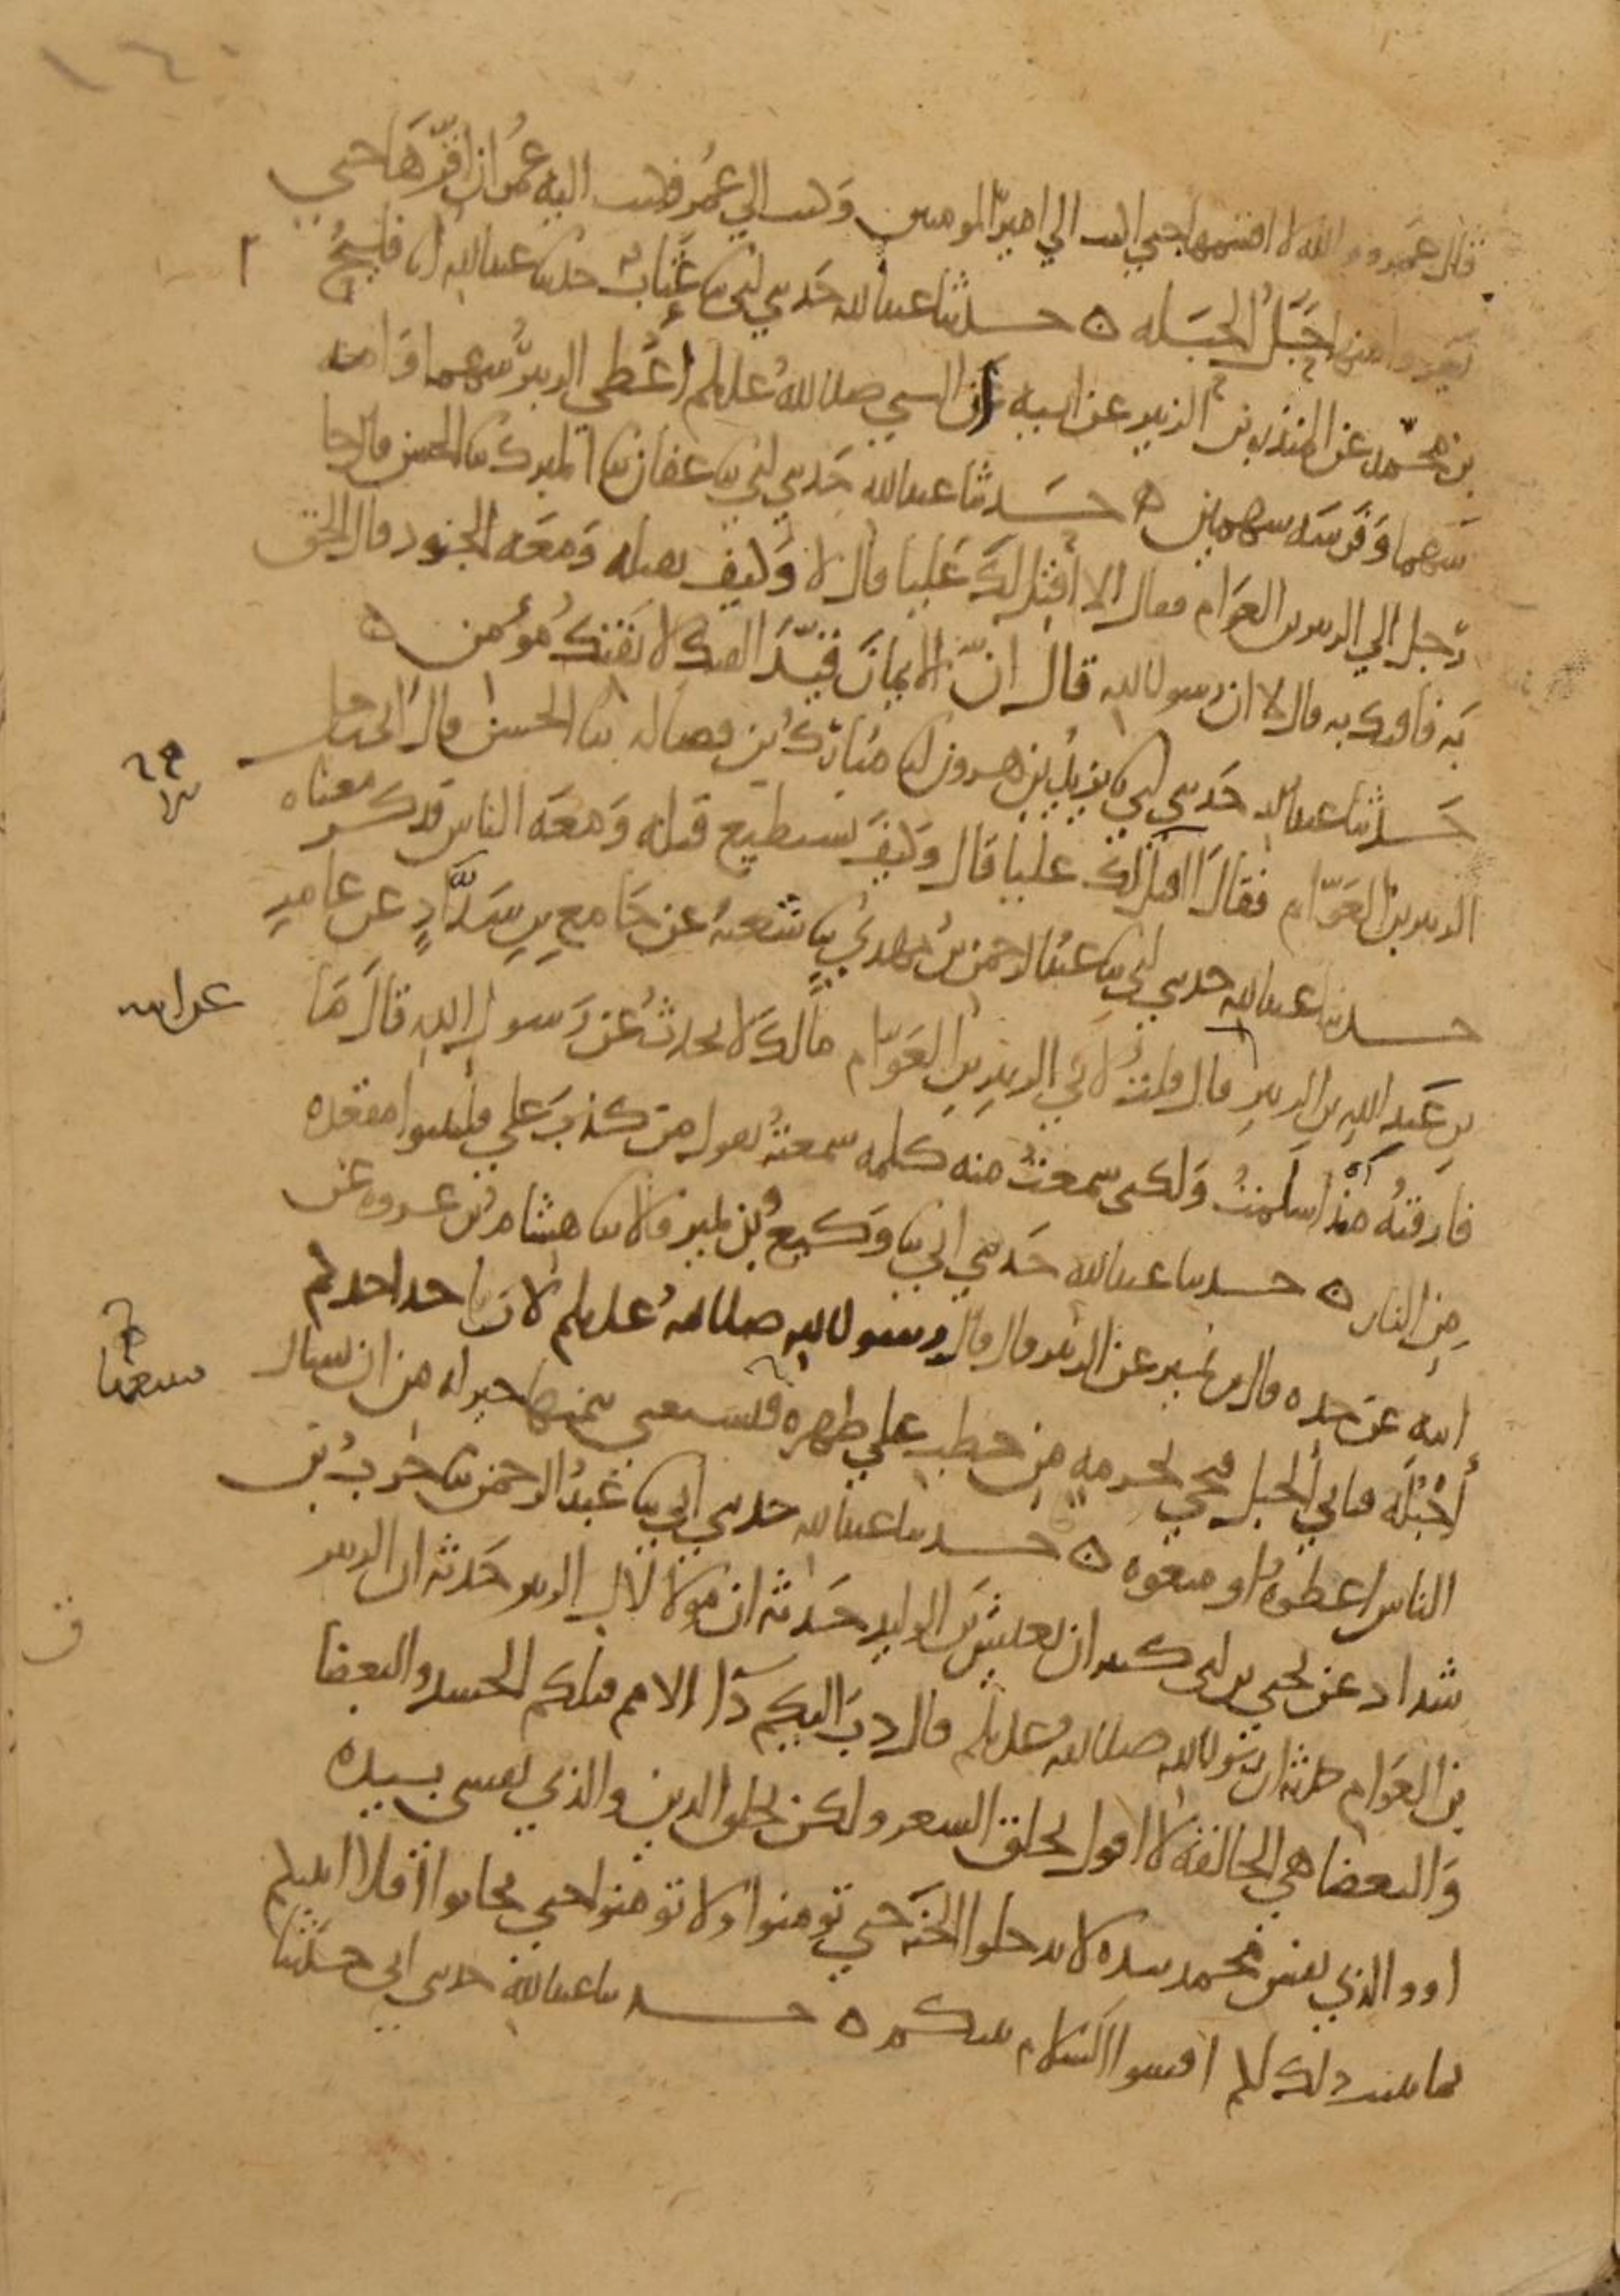 ١٤٠
قال عمرو والله لا اقسمها حتى اكتب الي امير المومنين وكتب الي عمر فكتب اليه عمر ان اقرها حتي
يغزوا منها حبل الحبله ه حدثنا عبدالله حدثني ابي ثنا عتاب حدثنا عبدالله انا فليح
بن محمد عن المنذر بن الزبير عن ابيه ان النبي صلى الله عليه وسلم اعطى الزبير سهما وامه
سهما وفرسه سهمين ه حدثنا عبدالله حدثني ابي ثنا عفان ثنا المبرك ثنا الحسن قال جا
رجل الي الزبير بن العوام فقال الا اقتل لك عليا قال لا وكيف تقتله ومعه الجنود قال الحق
به فافتك به قال لا ان رسول الله قال ان الايمان قيد الفتك لا يفتك مؤمن ه
حدثنا عبدالله حدثني ابي ثنا يزيد بن هرون انا مبارك بن فضاله ثنا الحسن قال اتى رجل
الزبير بن العوام فقال الا اقتل لك عليا قال وكيف تستطيع قتله ومعه الناس فذكر معناه
حدثنا عبدالله حدثني ابي ثنا عبد الرحمن بن مهدي ثنا شعبه عن جامع بن شداد عن عامر
بن عبد الله بن الزبير قال قلت لابي الزبير بن العوام مالك لا تحدث عن رسول الله قال ما
عن ابيه
فارقته منذ اسلمت ولكني سمعت منه كلمه سمعته يقول من كذب علي فليتبوا مقعده
من النار ه حدثنا عبدالله حدثني ابي ثنا وكيع وبن نمير قالا ثنا هشام بن عروه عن
ابيه عن جده قال بن نمير عن الزبير قال قال رسول الله صلى الله عليه وسلم لان ياخذ احدكم
أحبله فياتي الجبل فيجي بحزمه من حطب علي ظهره فيستغني بثمنها خير له من ان يسال
الناس اعطوه او منعوه ه حدثنا عبدالله حدثني ابي ثنا عبد الرحمن ثنا حرب بن
شداد عن يحيي بن ابي كثير ان يعيش بن الوليد حدثه ان مولا لال الزبير حدثه ان الزبير
بن العوام حدثه ان رسول الله صلى الله عليه وسلم قال دب اليكم دآ الامم قبلكم الحسد والبغضا
والبغضا هي الحالقه لا اقول تحلق الشعر ولكن تحلق الدين والذي نفسي بيده
او والذي نفس محمد بيده لا تدخلوا الجنه حتي تومنوا ولا تومنوا حتي تحابوا افلا انبيكم
بما يثبت ذلك لكم افشوا السلام بينكم ه حدثنا عبدالله حدثني ابي حدثنا